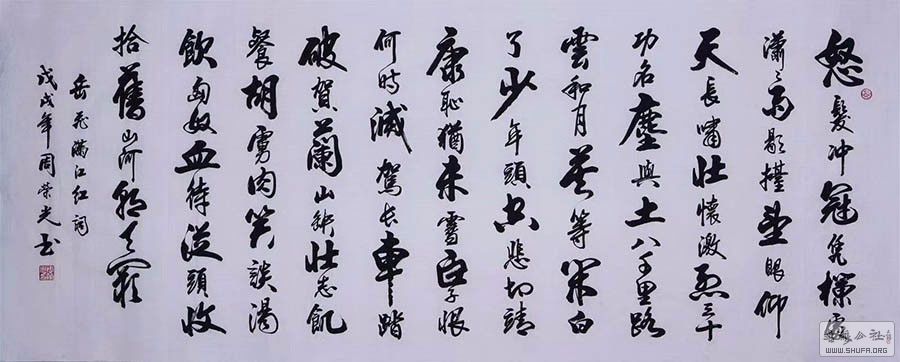 怒髮冲冠凭欄處
瀟瀟雨歇擡望眼仰
天長嘯壯懷激烈三十
功名塵與土八千里路
雲和月莫等閑白
了少年頭空悲切靖
康恥猶未雪臣子恨
何時滅駕長車踏
破賀蘭山缺壯志飢
餐胡虜肉笑談渴
飲匈奴血待從頭收
拾舊山河朝天闕
岳飛滿江紅詞
戊戌年周榮光書
WWW.SHUFA.ORG